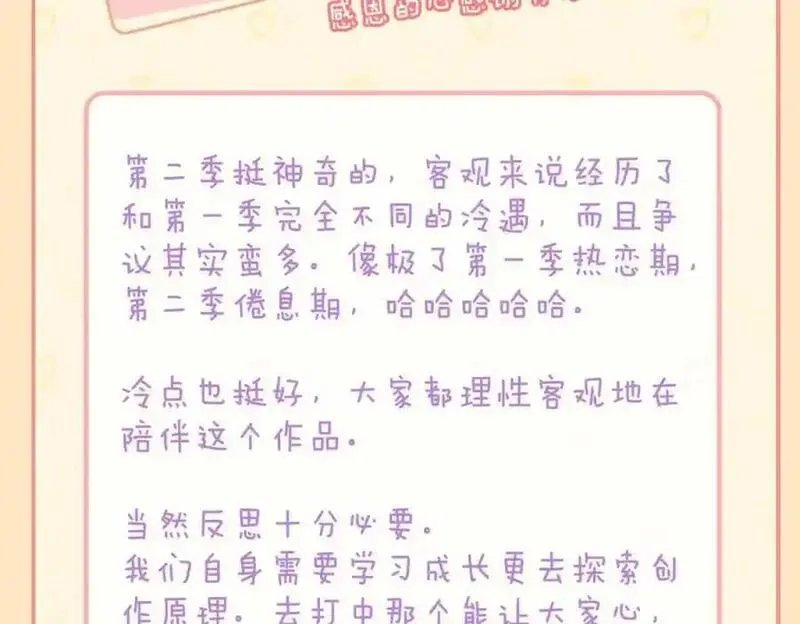 感恩的心感谢有你
第二季挺神奇的，客观来说经历了
和第一季完全不同的冷遇，而且争
议其实蛮多。像极了第一季热恋期，
第二季倦怠期，哈哈哈哈哈。
冷点也挺好，大家都理性客观地在
陪伴这个作品。
当然反思十分必要。
我们自身需要学习成长更去探索创
作原理。去打中那个能让大家心，